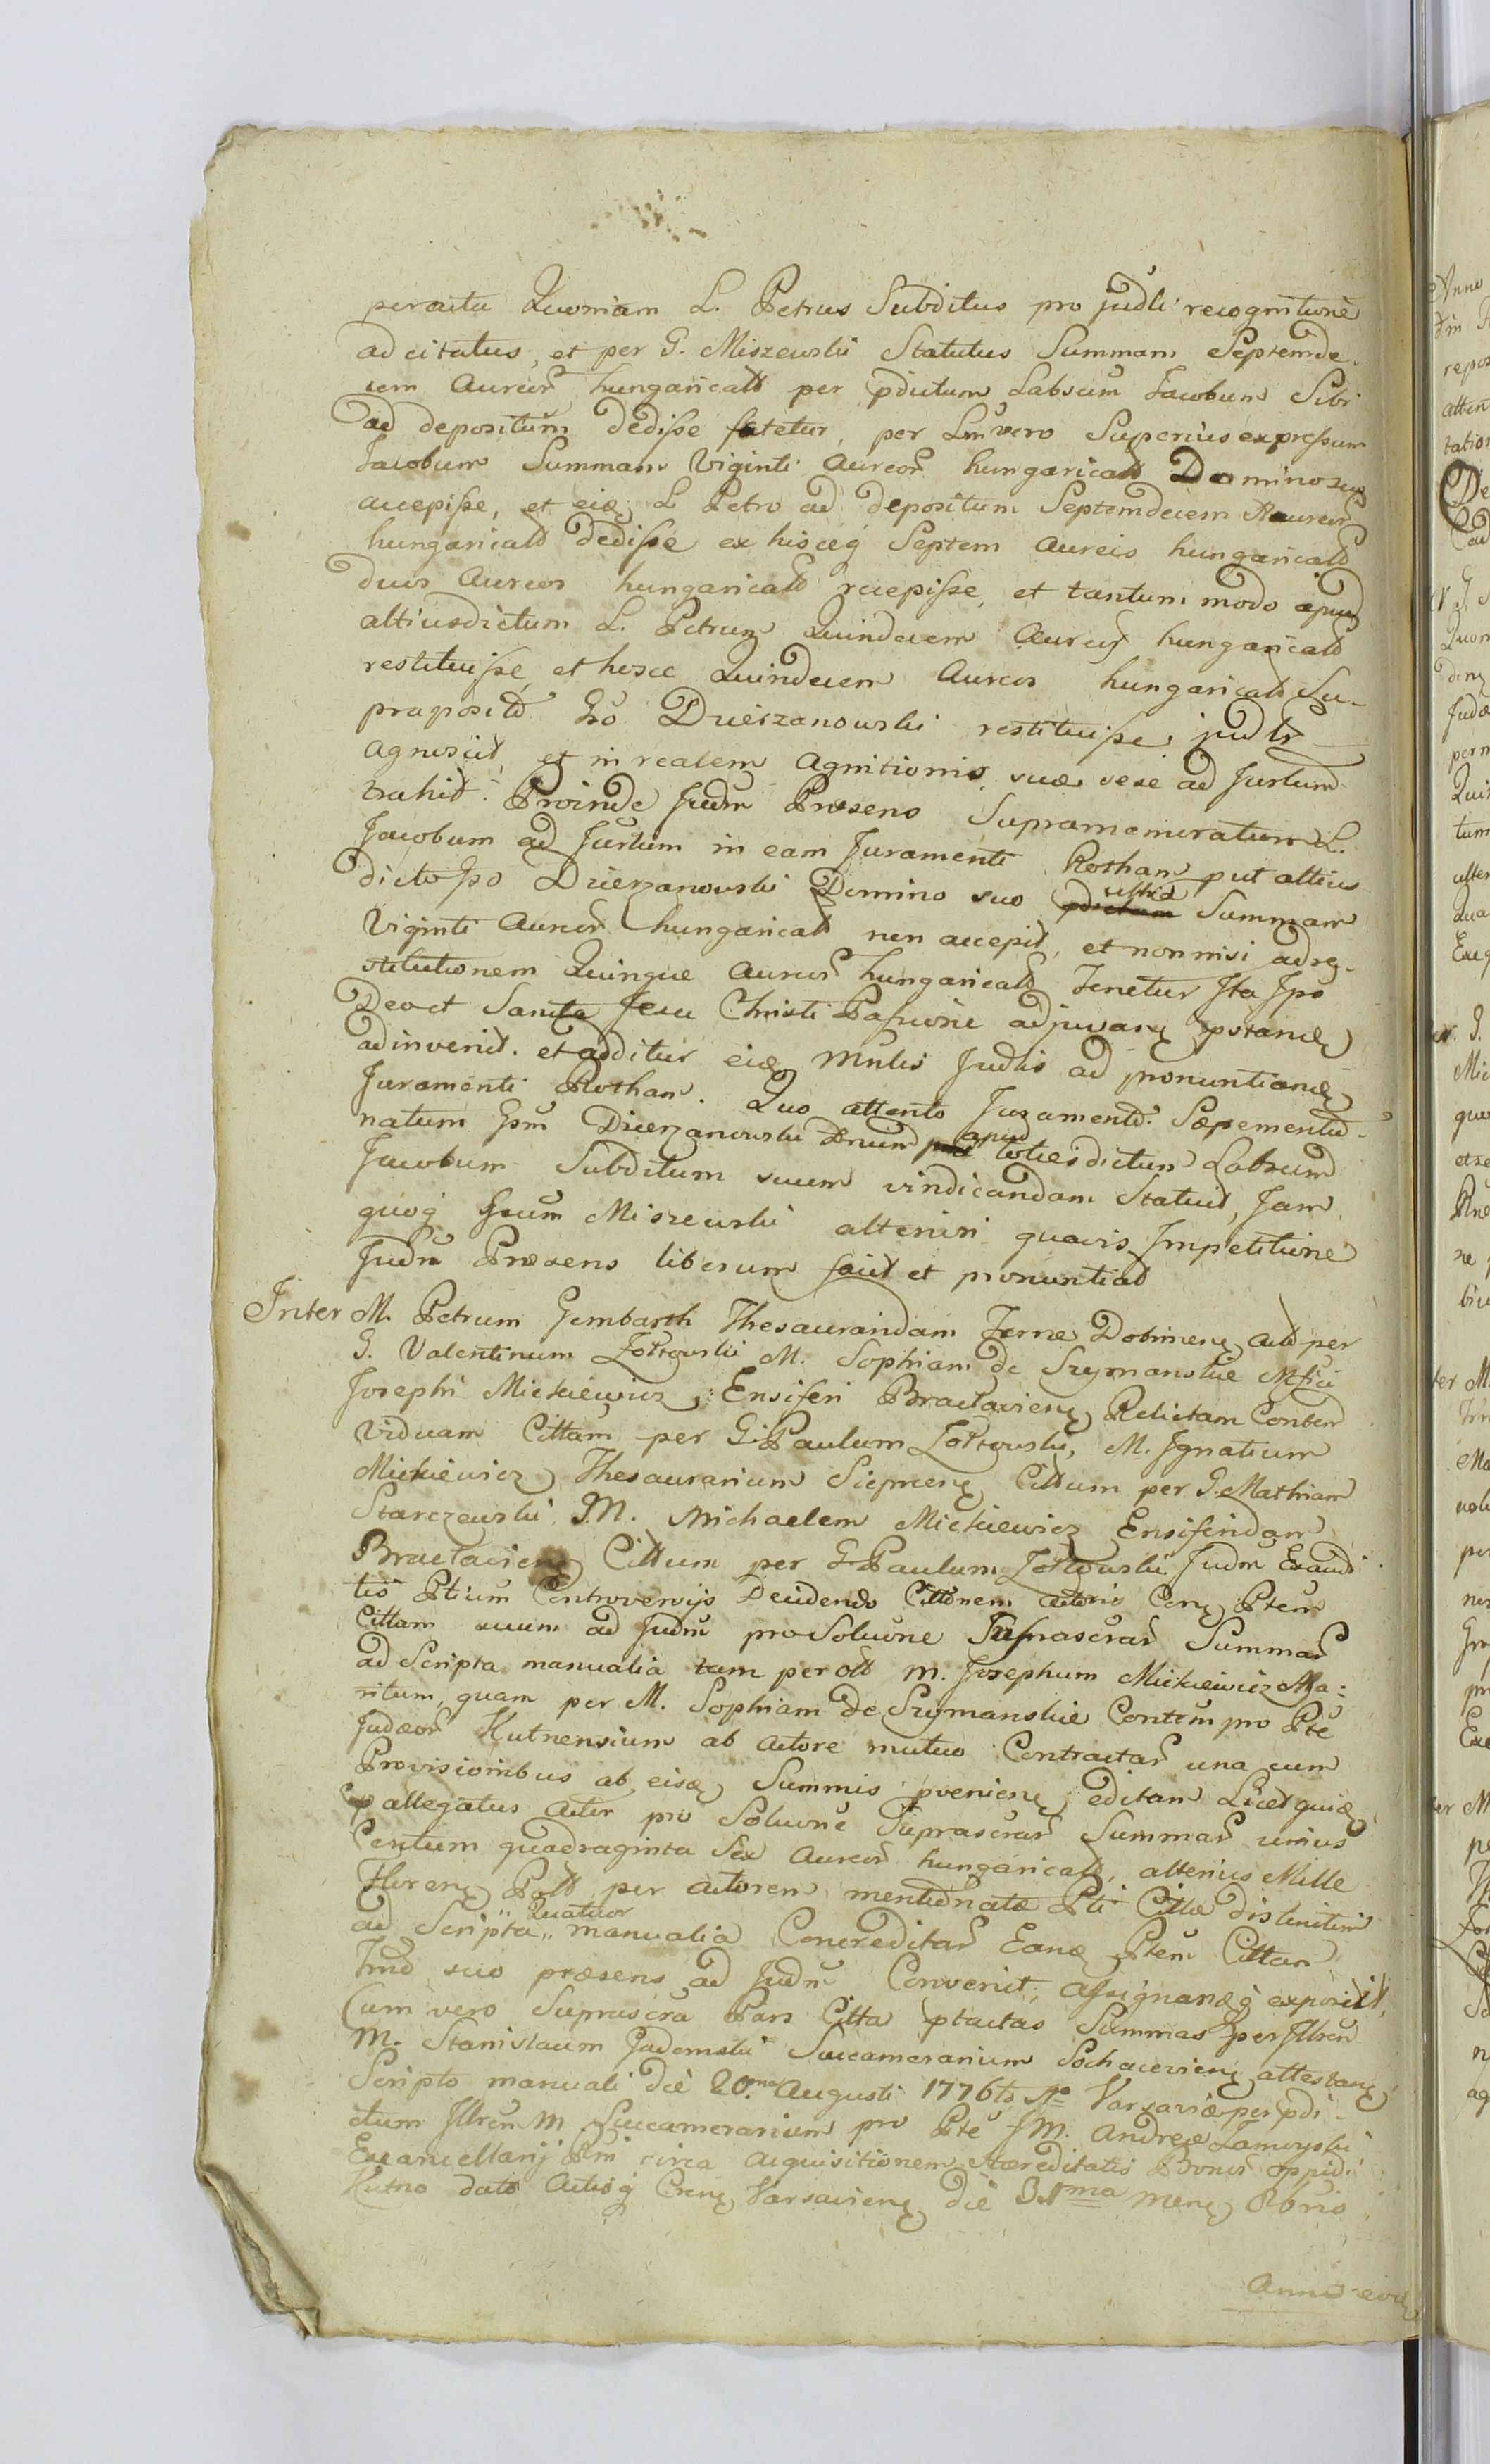 peracta Quoniam L. Petrus Subditus pro judli recognitione
adcitatus, et per G. Miszewski Statutus Summam Septemde-
cem Aureor hungaricalt per pdictum Labsum Jacobum Sibi
ad depositum dedisse fatetur, per Lm vero Superius expressum
Jacobum Summam Viginti Aureor hungaricalt Domino suo
accepisse, et eidq L Petro ad depositum Septemdecem Aureor
hungaricalt dedisse ex hisceq Septem Aureis hungaricalt
duos Aureos hungaricalt recepisse, et tantum modo apud
altiusdictum L. Petrum Quindecem Aureos hungaricalt
restituisse, et hosce Quindecem Aureos hungaricalt Su-
praposito Gso Dzierzanowski restituisse, judlr
agnoscit, et in realem Agnitionis suae sese ad Jurlum
trahit. Proinde Judm Praesens Supramemoratum L.
Jacobum ad Jurlum in eam Juramenti Rotham put altius
dicto Gso Dzierzanowski Domino suo Summam
Viginti Aureor hungaricalt non accepit, et nonnisi ad re-
stitutionem Quinque Aureor hungaricalt Tenetur Ita Ipso
Deo et Sancta Jesu Christi Passione adjuvanq pstandq
adinvenit. et additur eidq Mnlis Judlis ad pronuntiandq
Juramenti Rotham. Quo attento Juramento Saepementio-
natum Gsm Dzierzanowski apud toties dictum Labsum
Jacobum Subditum suum vindicandam Statuit, Jam
quoq Gsum Miszewski alteriori quavis Impetitione
Judm Praesens liberum facit et pronuntiat
Inter M. Petrum Gembarth Thesaurandam Terrae Dobrinenq Actt per
G. Valentinum Zołtowski M. Sophiam de Szymanskie Mfici
Josephi Mickiewicz, Ensiferi Bracłavienq Relictam Contem
Viduam Cittam per G. Paulum Zołtowski, M. Ignatium
Mickiewicz Thesaurarium Siepmenq Cittum per G. Mathiam
Starczewski J.M. Michaelem Mickiewicz Ensiferidam
Bracłavienq Cittum per G Paulum Zołtowski Judm Exaudi
tis Ptium Controversijs Decidendo Cittonem Actoris Conq Ptem
Cittam suum ad Judm pro Solucne Suprascrar Summar
ad Scripta manualia tam per olt M. Josephum Mickiewicz Ma=
ritum, quam per M. Sophiam de Szymanskie Contem pro Pte
Judaeor Kutnensium ab Actore mutuo Contractar una cum
Provisionibus ab eisdq Summis pvenienq editam Licet quidq
pallegatus Actor pro Solucne Suprascrar Summar unius
Centum quadraginta Sex Aureor hungaricalt, alterius Mille
Florenq Polt per Actorem mentionatae Pti Cittae distinctim
Quatuor
ad Scripta manualia Concreditar Eandq Ptem Cittam
Tmo suo praesens ad Judm Convenit, assignandq exposcit,
Cum vero Suprascra Pars Citta ptactas Summas per Illrem
M. Stanislaum Gadomski Succamerarium Sochacevienq attestanq
Scripto manuali die 20ma Augusti 1776to Ao Varsaviae per pdi-
ctum Illrem M Succamerarium pro Pte JM. Andreae Zamoyski
Excancellarij Rni circa acquisitionem Haereditatis Bonor oppidi
Kutno dato Actisq Crenq Varsavienq die 31ma Menq Xbris
Anni eve